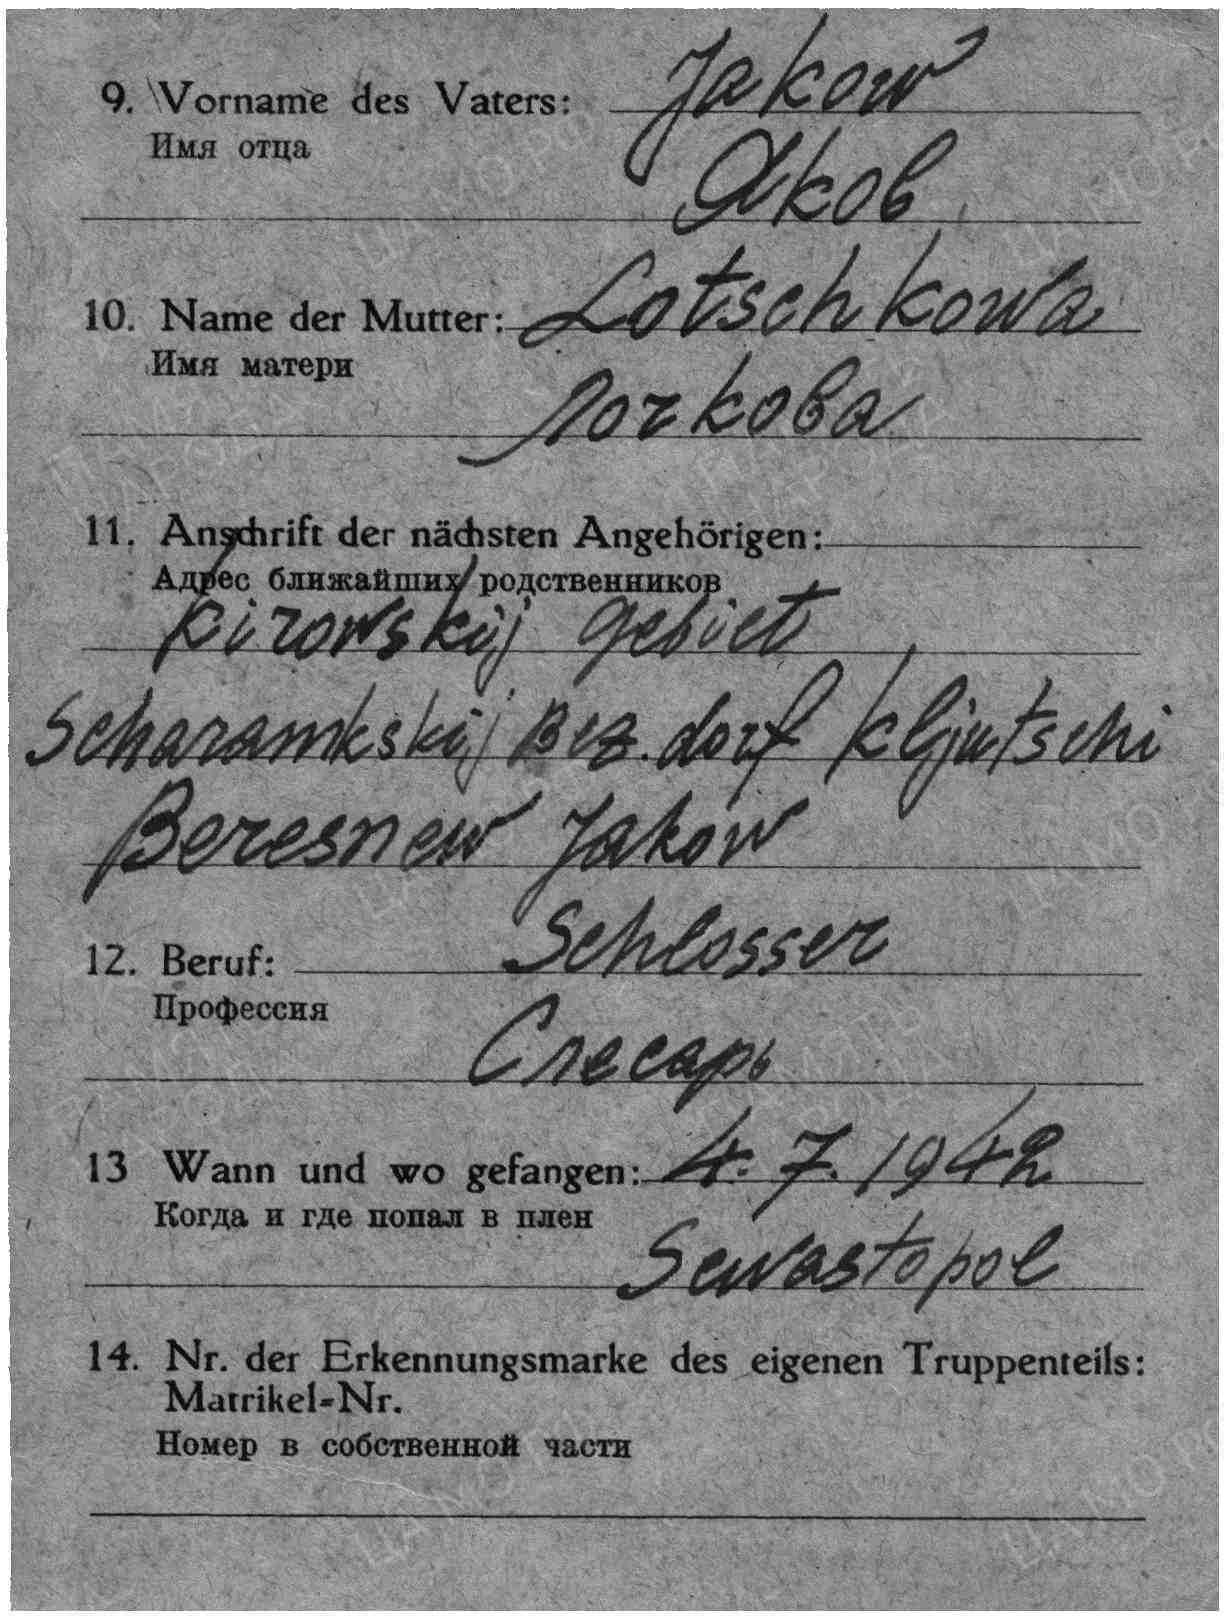 9. Vorname des Vaters: Jakow
Имя отца
Яков
10. Name der Mutter: Lotschkowa
Имя матери
Лочкова
11. Anschrift der nächsten Angehörigen:
Адрес ближайших родственников
Kirowskij gebiet
Scharamkskij Bez. dorf Kljutschi
Beresnew Jakow
12. Beruf: Schlosser
Профессия
Слесарь
13 Wann und wo gefangen: 4. 7. 1942
Когда и где попал в плен
Sewastopol
14. Nr. der Erkennungsmarke des eigenen Truppenteils:
Matrikel-Nr.
Номер в собственной части